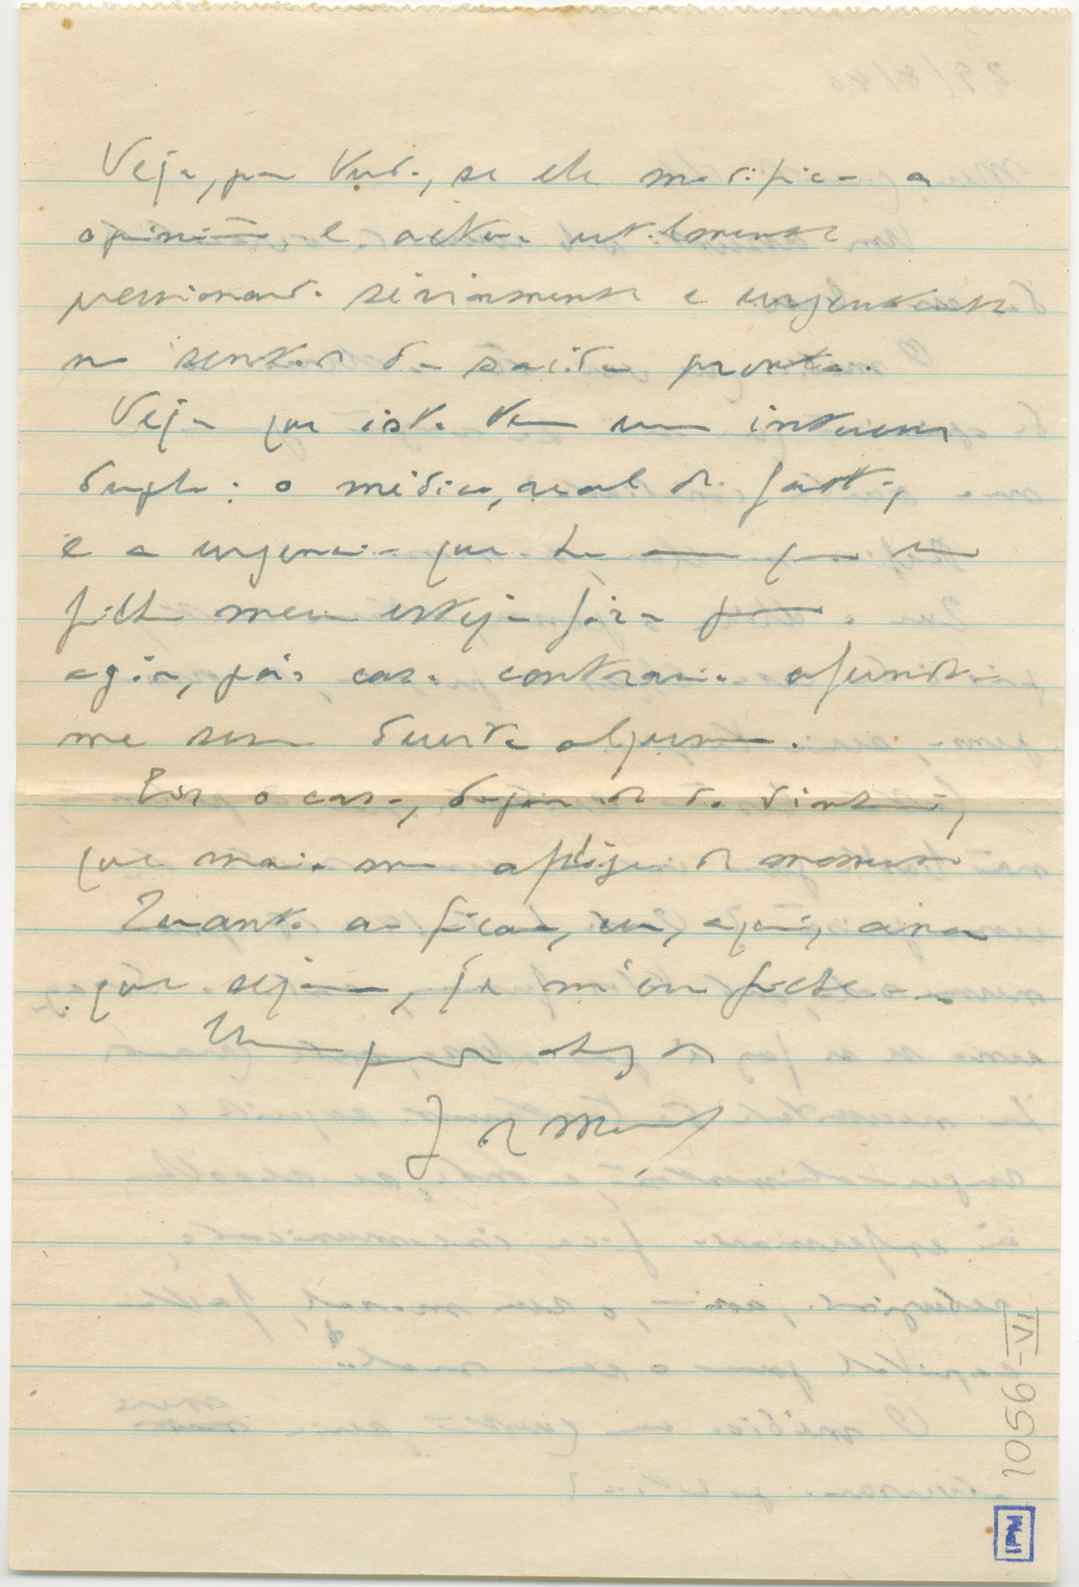 Veja, por tudo, se ele modifica a
opinião e actue utilmente
pressionando seriamente e urgentemente
no sentido da saída pronta.
Veja que isto tem um interesse
duplo: o médico, real de facto,
e a urgencia que ha em que um
filho meu esteja fóra para
agir, pois caso contrario afundo-
me sem duvida alguma.
Eis o caso, depois do do dinheiro,
que mais me aflige de momento
Quanto a ficar, eu, aqui,
que seja, já
Um grande abraço de
J. de
1056-VI